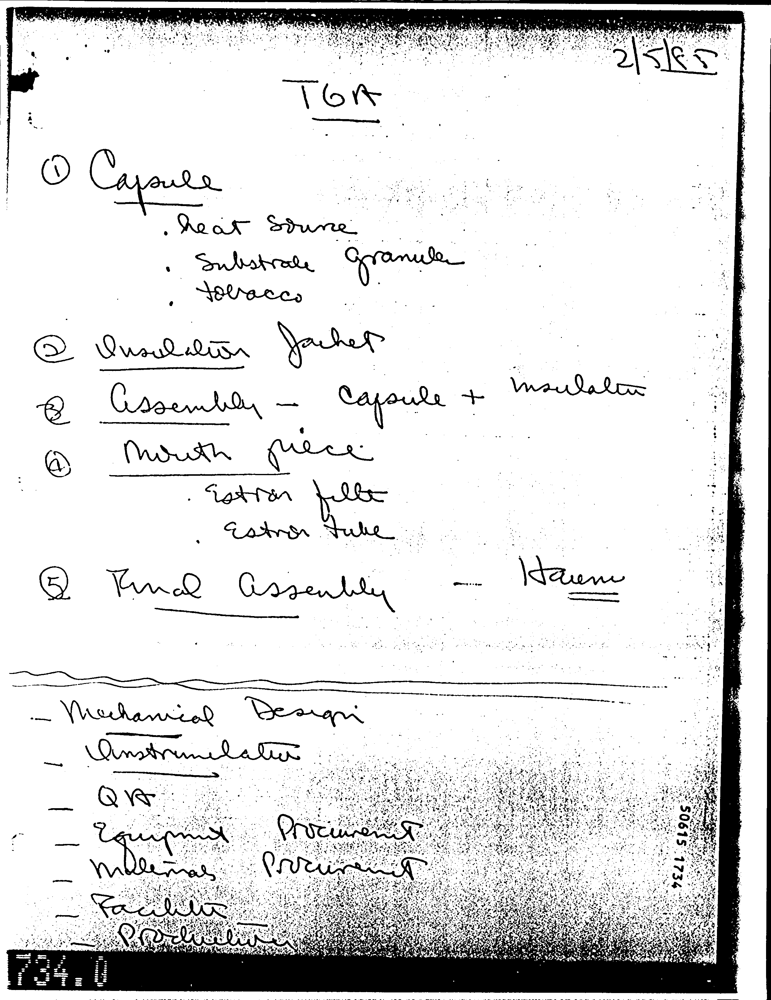 2/5/85
TGA
① Capsule
. heat source
. Substrate granules
. tobacco
② Insulation Jacket
③ Assembly - Capsule + insulation
④ Mouth piece
. Estron filter
. Estron tube
⑤ Final Assembly -
- Mechanical Design
- Instrumentation
- QA
- Equipment Procurement
- Materials Procurement
- Facilities
- Production
50615 1734
734.0